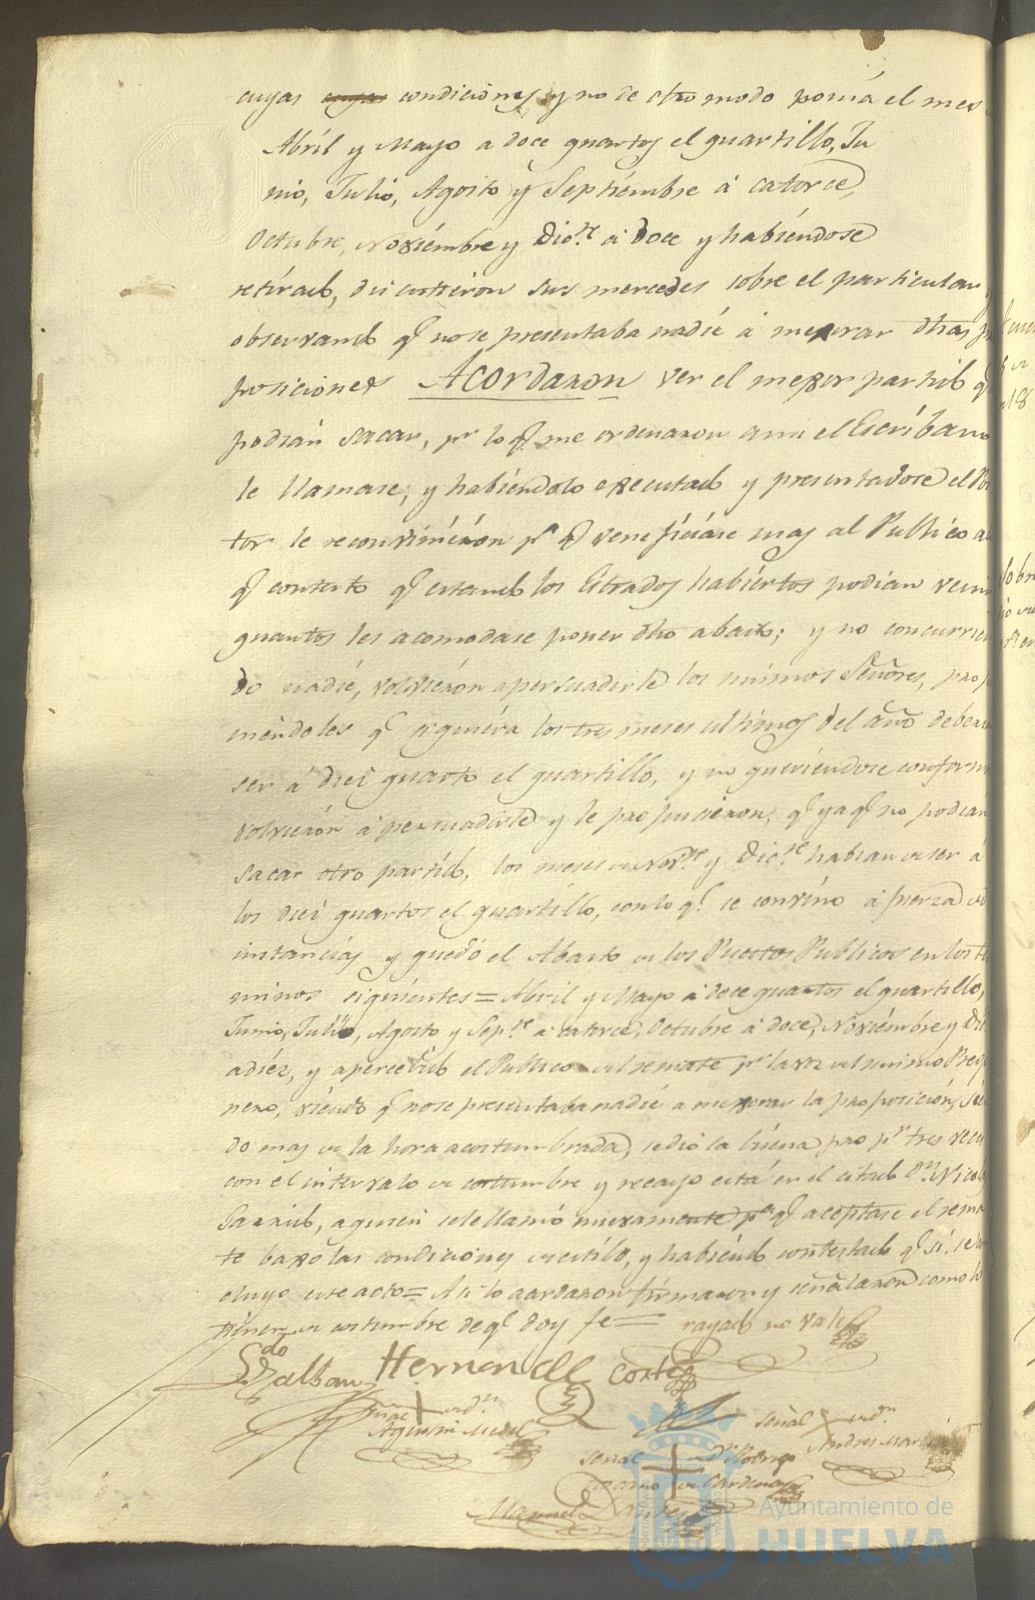 cuyas cuyas condiciones, y no de otro modo ponia el mes
Abril y Mayo a doce quartos el quartillo, Ju
nio, Julio, Agosto y Septiémbre á catorce,
Octubre, Noviémbre y Dic.re á Doce y habiéndose
retirado, discutieron sus mercedes sobre el particular
observando q.e no se presentaba nadie á mejorar dhas
posiciones Acordaron ver el mejor partido q.e
podian sacar, pr lo q.e me ordenaron a mi el Escribano
le llamase, y habiéndolo executado y presentadose el
tor le reconvinieron pa q.e veneficiáse mas al Publico a
q.e contexto q.e estando los Estrados habiertos podian venir
quantos les acomodase poner dho abasto; y no concurrien
do nadie, volvieron a persuadirle los mismos Señores, prop
niéndoles q.e siquiéra los tres meses ultimos del año deberia
ser á diez quartos el quartillo, y no queriéndose conform
volvieron á persuadirle y le propusieron, q.e ya q.e no podian
sacar otro partido, los meses de Nov.re y Dic.re habian de ser á
los diez quartos el quartillo, con lo q.e se convino á fuerza de
instancias y quedó el Abasto de los Puestos Publicos en los té
minos siguientes = Abril y Mayo á doce quartos el quartillo,
Junio, Julio, Agosto y Sep.re á catorce, Octubre á doce, Noviémbre y Dic
a diéz, y apercebido el Publico del remate pr la voz del mismo Preg
nero, viendo q.e no se presentaba nadie a mejorar la proposición, Sién
do mas de la hora acostumbrada, se dió la buena pro pr tres veces
con el intervalo de costumbre y recayo esta en el citado Dn Nicol
a quien se le llamó nuevamente pa q.e aceptase el rema
te baxo las condiciones de estilo, y habiéndo contestado q.e sí: se con
cluyo este acto = Asi lo acordaron firmaron y señalaron como lo
tienen de costumbre de q.e doy fe = rayado no vale
Hernandez Cortes
Señal de Dn
Agustin Medel
señal de Dn
Andres
señal de Dn Rodrigo
de Cardenas
Manuel
Ayuntamiento de
HUELVA